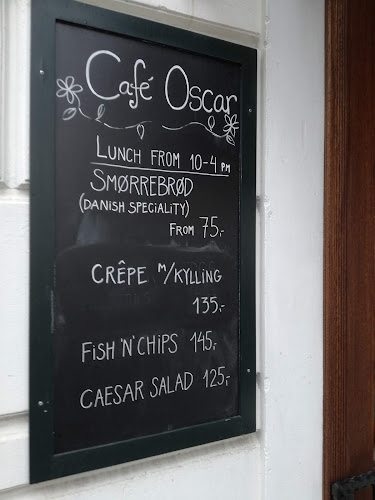 Café Oscar
LUNCH FROM 10-4 PM
SMØRREBRØD
(DANISH SPECIALITY)
FROM 75,-
CRÊPE M/KYLLING
135,-
FISH 'N' CHIPS 145,-
CAESAR SALAD 125,-